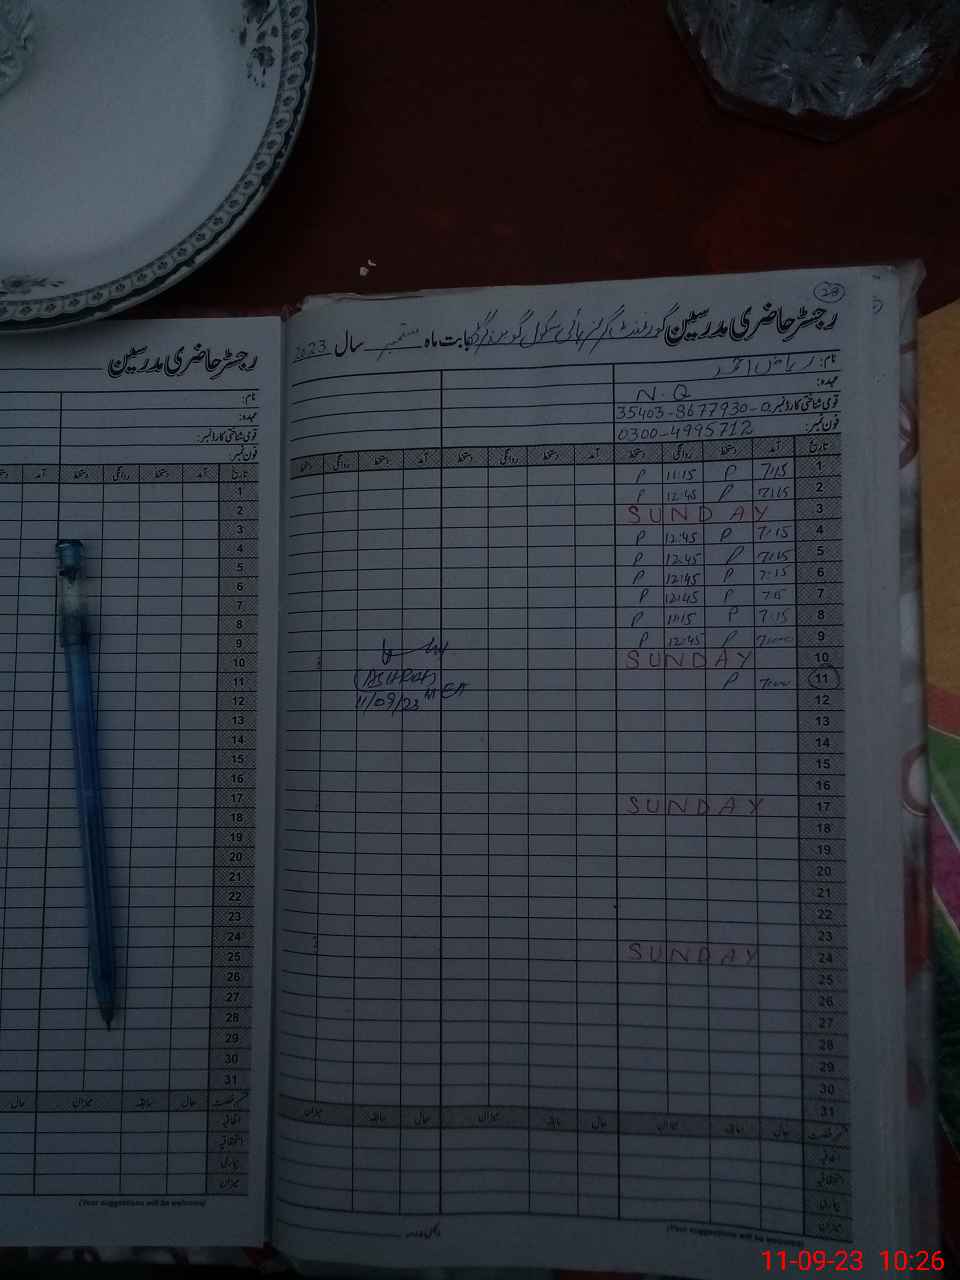 28
رجسٹر حاضری مدرسین گورنمنٹ گرلز ہائی سکول بابت ماہ ستمبر سال 2023
نام: ریاض احمد
عہدہ: N.Q
قومی شناختی کارڈ نمبر: 35403-8677930-0
فون نمبر: 0300-4995712
تاریخ آمد دستخط روانگی دستخط آمد دستخط روانگی دستخط آمد دستخط روانگی دستخط
1 7:15 P 11:15 P
2 7:15 P 12:45 P
3 SUNDAY
4 7:15 P 12:45 P
5 7:15 P 12:45 P
6 7:15 P 12:45 P
7 7:15 P 12:45 P
8 7:15 P 11:15 P
9 7:00 P 12:45 P
10 SUNDAY
11 7:00 P
(ASHRAF)
11/09/23
12
13
14
15
16
17 SUNDAY
18
19
20
21
22
23
24 SUNDAY
25
26
27
28
29
30
31
حال سابقہ میزان حال سابقہ میزان حال سابقہ میزان
اتفاقیہ
استحقاقیہ
بیماری
میزان
(Your suggestions will be welcome)
رجسٹر حاضری مدرسین
نام:
عہدہ:
قومی شناختی کارڈ نمبر:
فون نمبر:
تاریخ آمد دستخط روانگی دستخط آمد دستخط
1
2
3
4
5
6
7
8
9
10
11
12
13
14
15
16
17
18
19
20
21
22
23
24
25
26
27
28
29
30
31
حال سابقہ میزان حال
اتفاقیہ
استحقاقیہ
بیماری
میزان
(Your suggestions will be welcome)
11-09-23 10:26